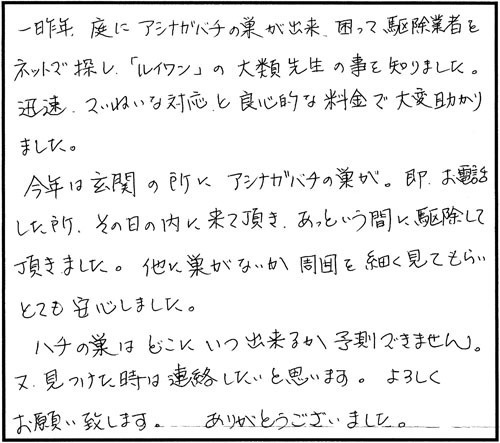 一昨年、庭に アシナガバチの巣が出来、困って駆除業者を
ネットで探し、「ルイワン」の 大類先生の事を知りました。
迅速、ていねいな対応、と良心的な料金で大変助かり
ました。
今年は玄関の所に アシナガバチの巣が。即、お電話
した所、その日の内に来て頂き、あっという間に駆除して
頂きました。他に巣がないか 周囲を 細く見てもらい
とても安心しました。
ハチの巣は どこに いつ出来るか 予測できません。
又、見つけた時は連絡したいと思います。よろしく
お願い致します。 ありがとうございました。